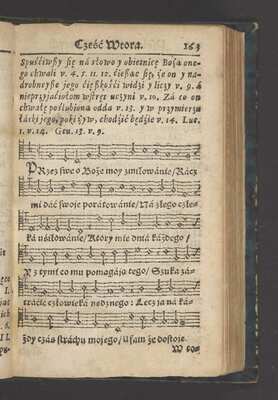 Część Wtora. 163
Spuściwszy się na słowo y obietnicę Boga one-
go chwali v. 4. 5. 11. 12. ciesząc się, że on y na-
drobneysze jego ciężkości widzi y liczy v. 9. á
nieprzyjaciołom wstręt uczyni v. 10. Zá to on
chwałę poślubiona odda v. 13. y w przymierzu
łaski jego, poki żyw, chodzić będzie v. 14. Luc.
1. v. 14. Gen. 13. v. 9.
PRzez swe o Boże moy zmiłowánie/ Rácz
mi dáć swoje porátowánie/ Ná złego człe-
ká usiłowánie/ Ktory mie dniá káżdego/
Y z tymi co mu pomagájo tego/ Szuka zá-
trácić człowieká nędznego: Lecz já ná ká-
żdy czás stráchu mojego/ ufam że dostoje.
W Bo-